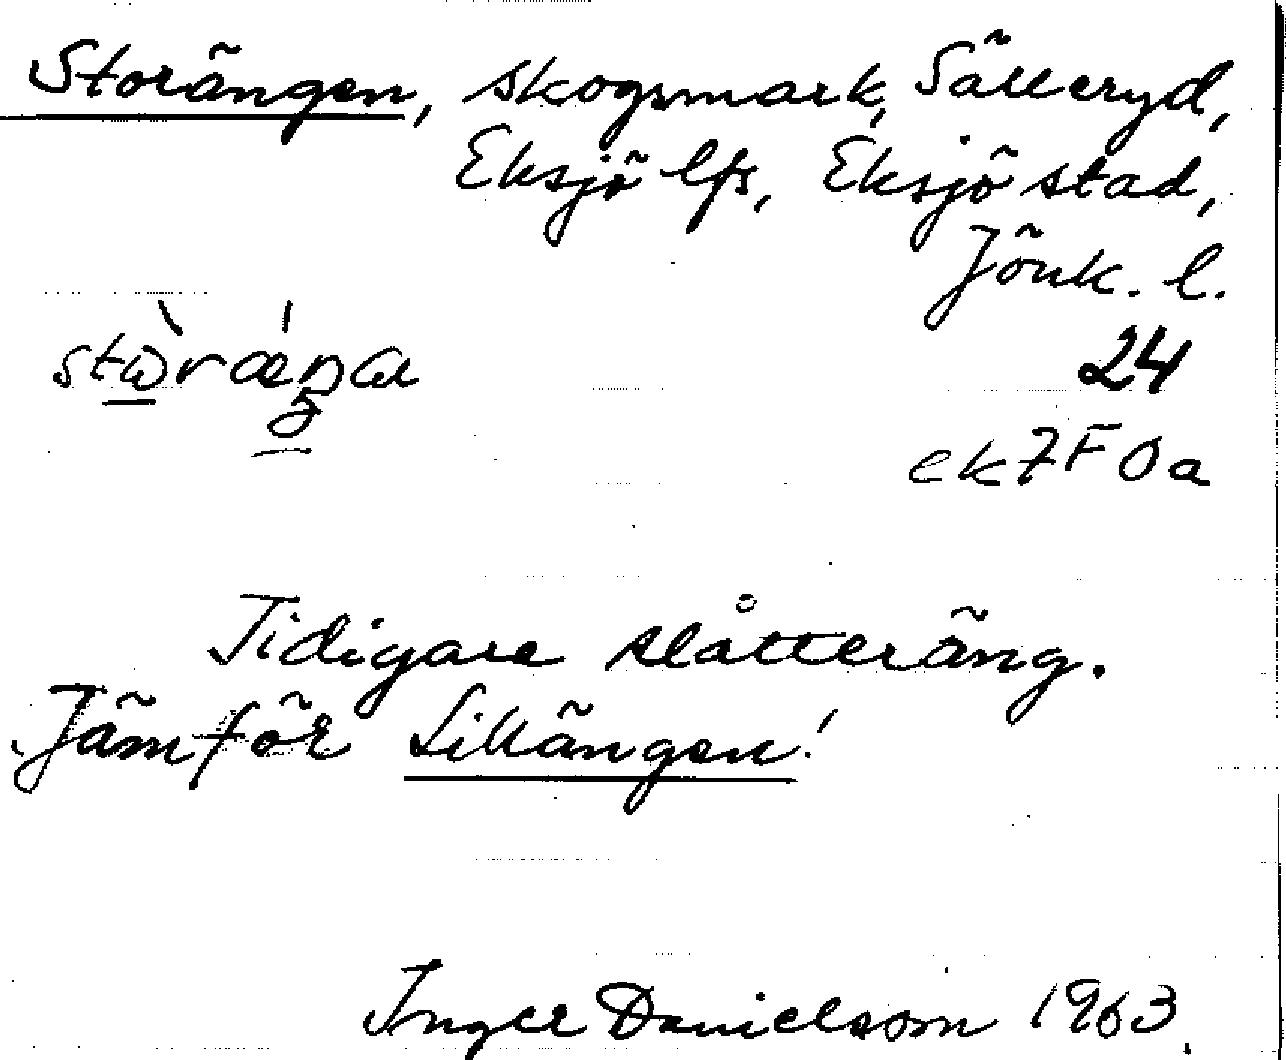 Storängen, skogsmark, Sälleryd,
Eksjö lfs, Eksjö stad,
Jönk. l.
24
ek 7F 0a
Tidigare slåtteräng.
Jämför Lillängen!
Inger Danielsom 1963